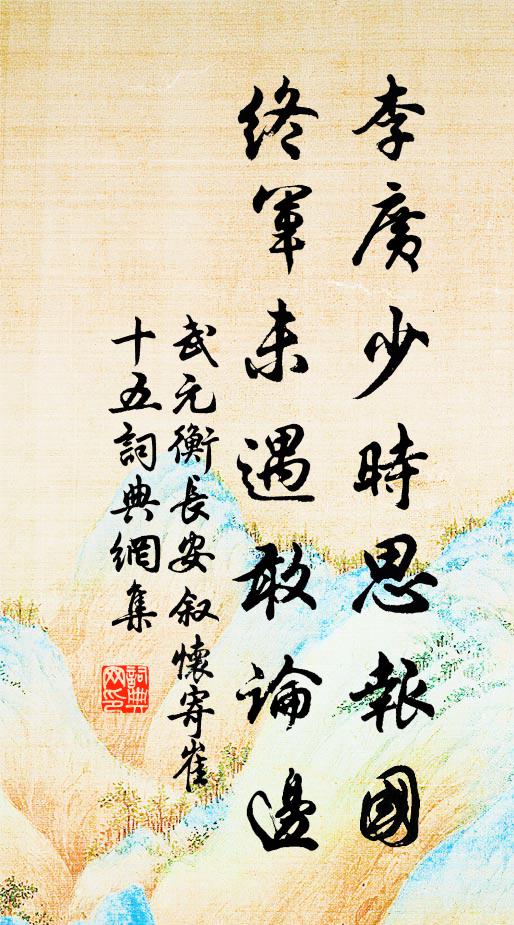 李廣少時思報國
終軍未遇敢論邊
武元衡長安叙懷寄崔
十五詞典網集
詞典
网印